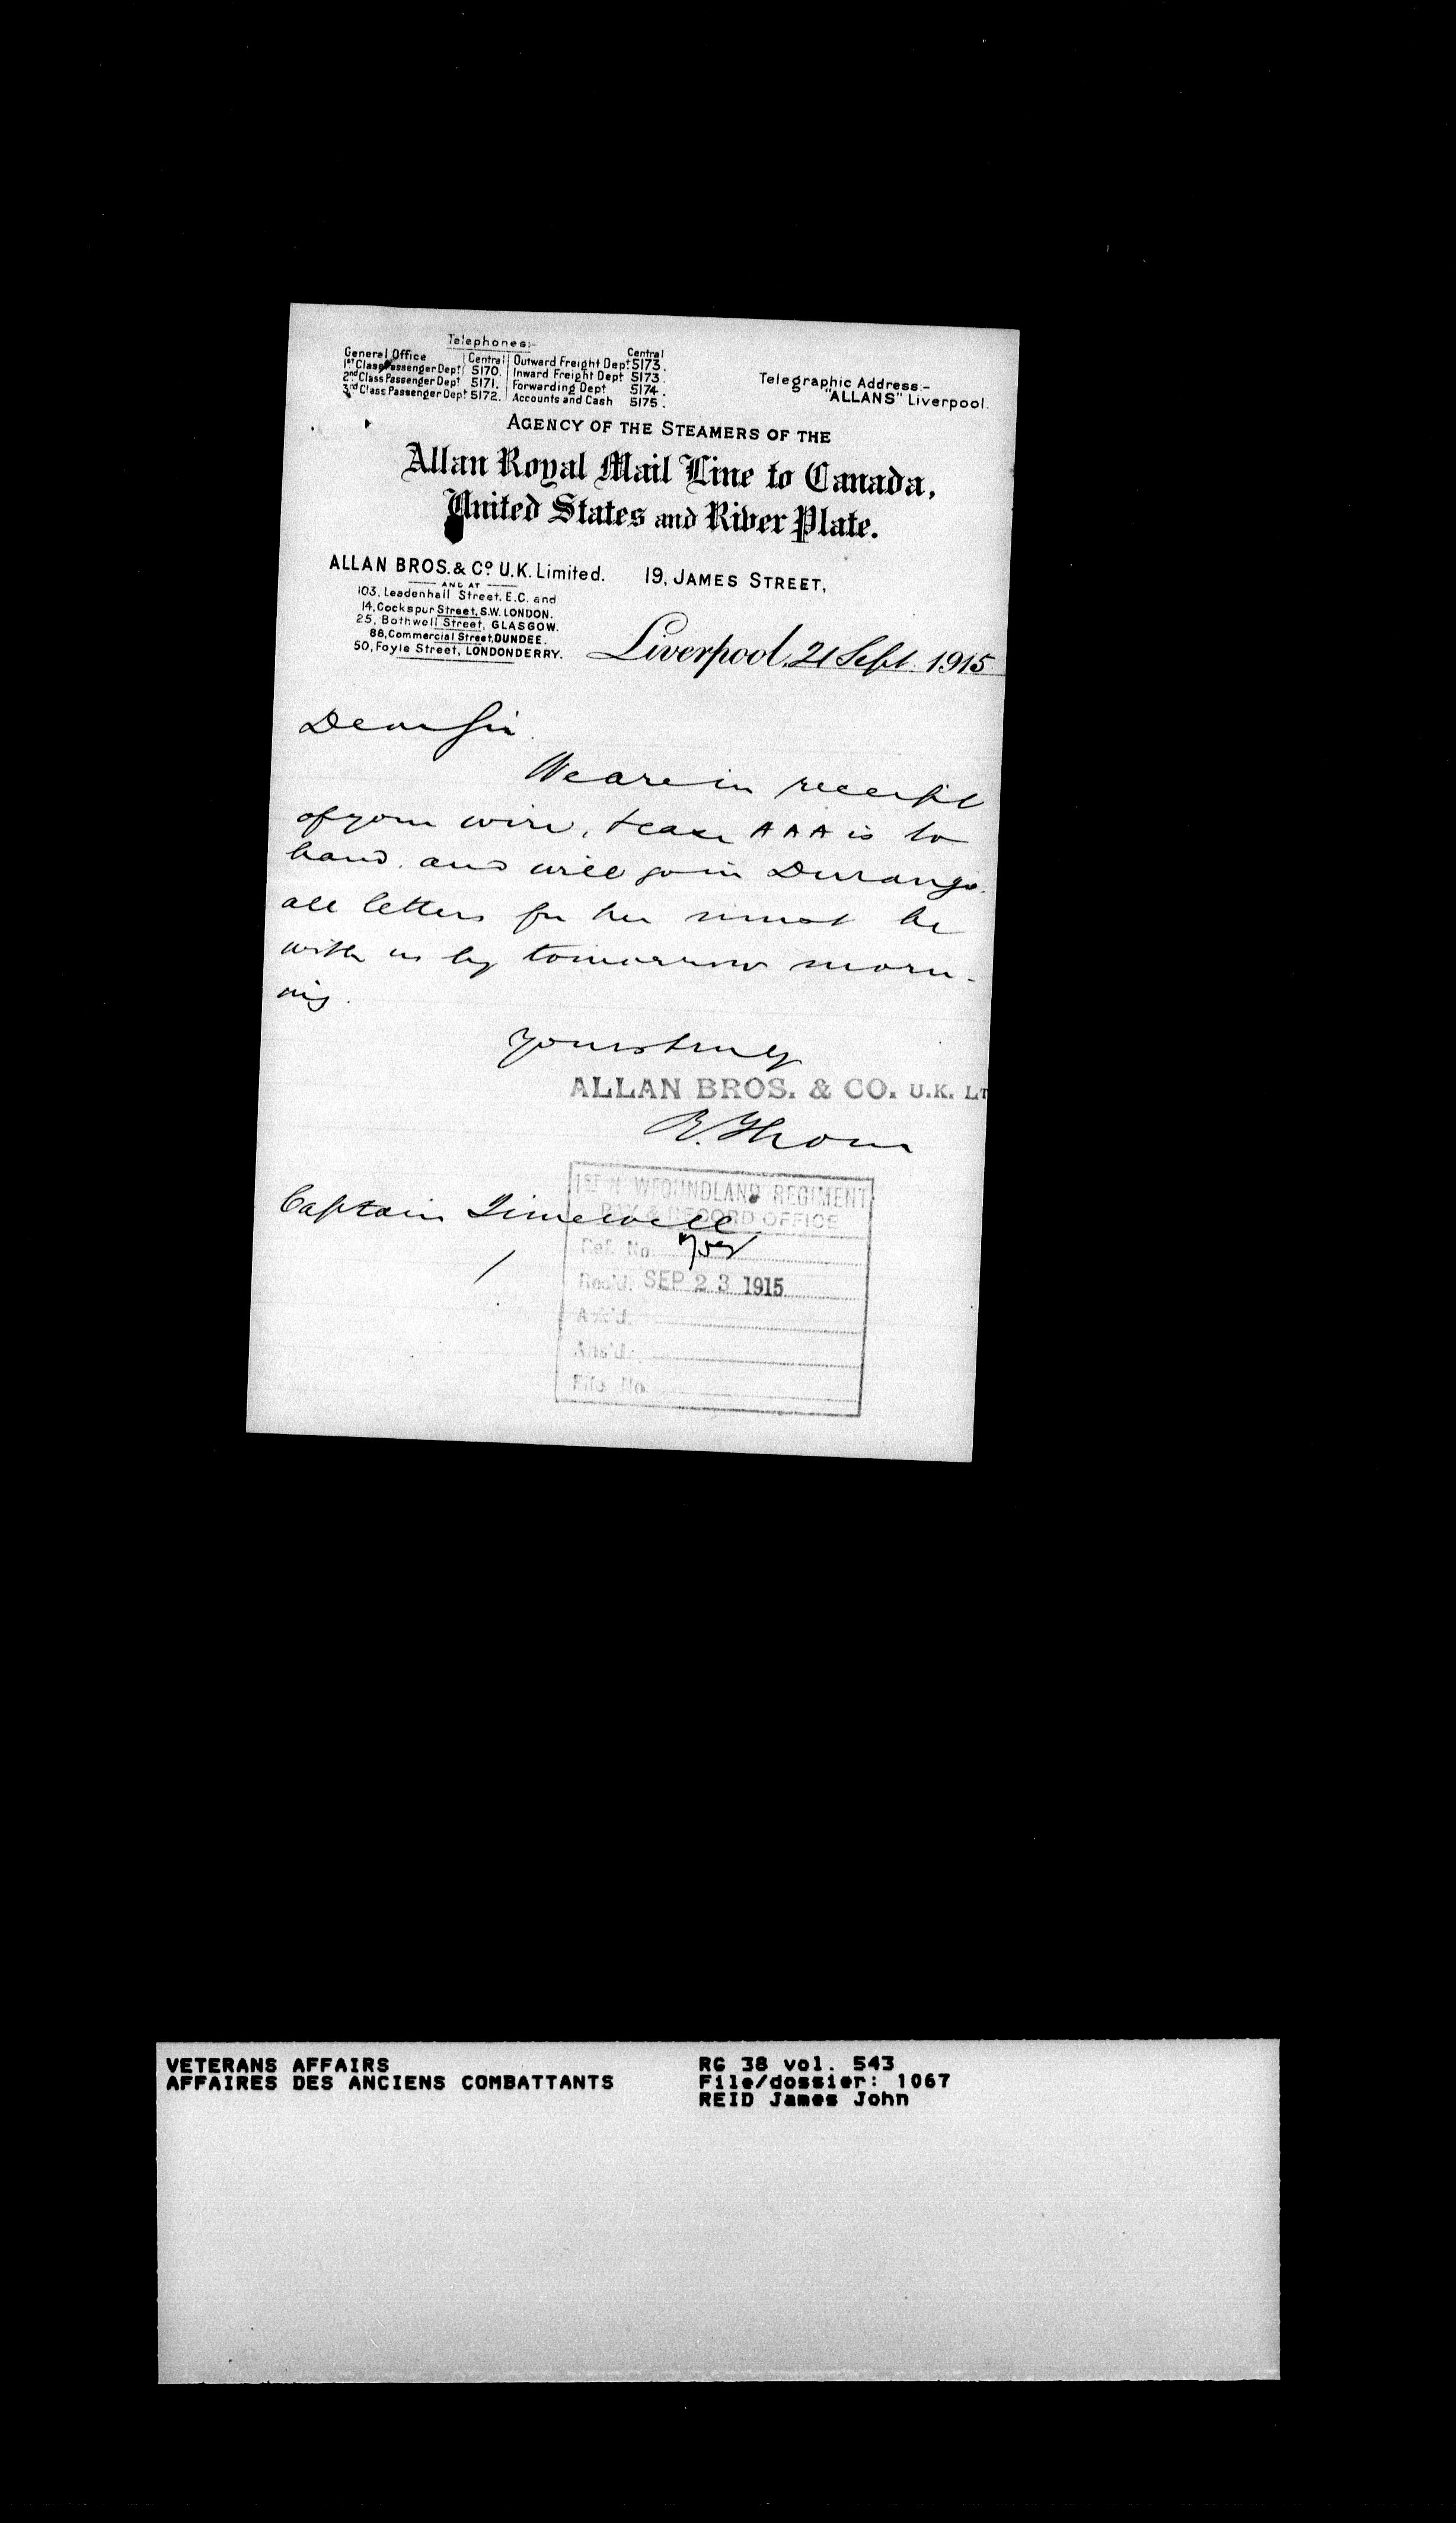 Telephones:-
General Office Central Outward Freight Dept 5173. Central
1st Class Passenger Dept 5170. Inward Freight Dept 5173.
2nd Class Passenger Dept 5171. Forwarding Dept 5174.
3rd Class Passenger Dept 5172. Accounts and Cash 5175.
Telegraphic Address:-
"ALLANS" Liverpool.
AGENCY OF THE STEAMERS OF THE
Allan Royal Mail Line to Canada,
United States and River Plate.
ALLAN BROS. & Co. U.K. Limited. 19, JAMES STREET,
AND AT
103, Leadenhall Street, E.C. and
14, Cockspur Street, S.W. LONDON.
25, Bothwell Street, GLASGOW.
88, Commercial Street, DUNDEE.
50, Foyle Street, LONDONDERRY.
Liverpool, 21 Sept. 1915
Dear Sir.
We are in receipt
of your wire, case AAA is to
hand. and will go in Durango.
all letters for her must be
with us by tomorrow morn-
ing.
Yours truly
ALLAN BROS. & CO. U.K. LT
R. Thom
1ST N WFOUNDLAND REGIMENT
PAY & RECORD OFFICE
Captain Timewell
Ref. No.
Rec'd. SEP 23 1915
Ack'd.
Ans'd.
File No.
VETERANS AFFAIRS
AFFAIRES DES ANCIENS COMBATTANTS
RG 38 vol. 543
File/dossier: 1067
REID James John